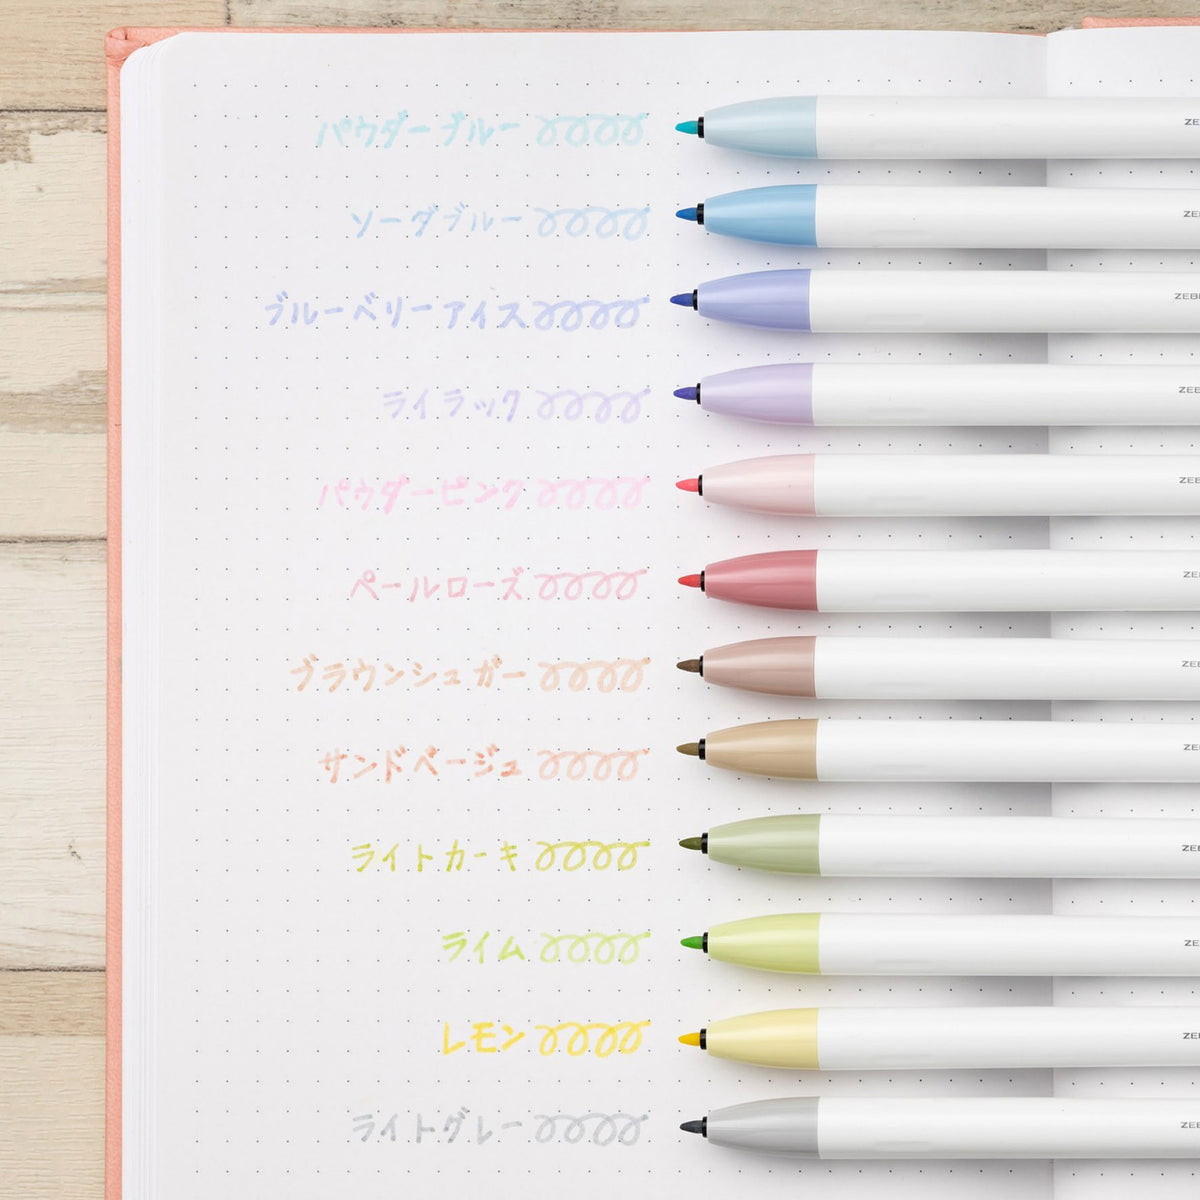 パウダーブルー ZE
ソーダブルー ZEB
ブルーベリーアイス ZEB
ライラック ZEB
パウダーピンク ZEB
ペールローズ ZEB
ブラウンシュガー ZEB
サンドベージュ ZEB
ライトカーキ ZEB
ライム ZEB
レモン ZEB
ライトグレー ZEB